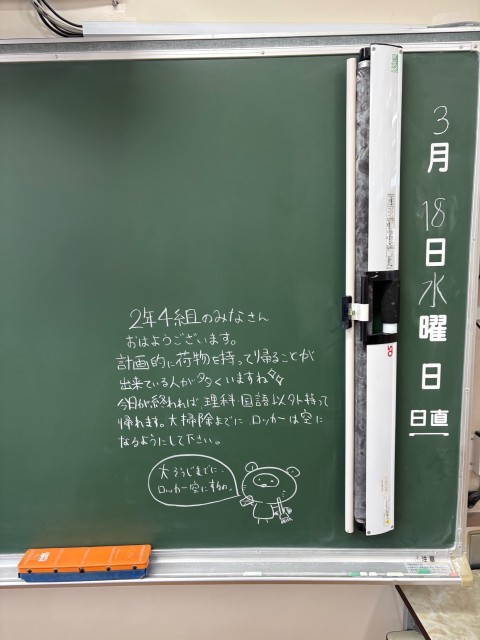 2年4組のみなさん
おはようございます。
計画的に荷物を持って帰ることが
出来ている人が多くいますね
今日が終われば、理科・国語以外持って
帰れます。大掃除までに ロッカーは空に
なるようにして下さい。
大そうじまでに、
ロッカー空にするの。
3
月
18
日
水
曜
日
日直
注意